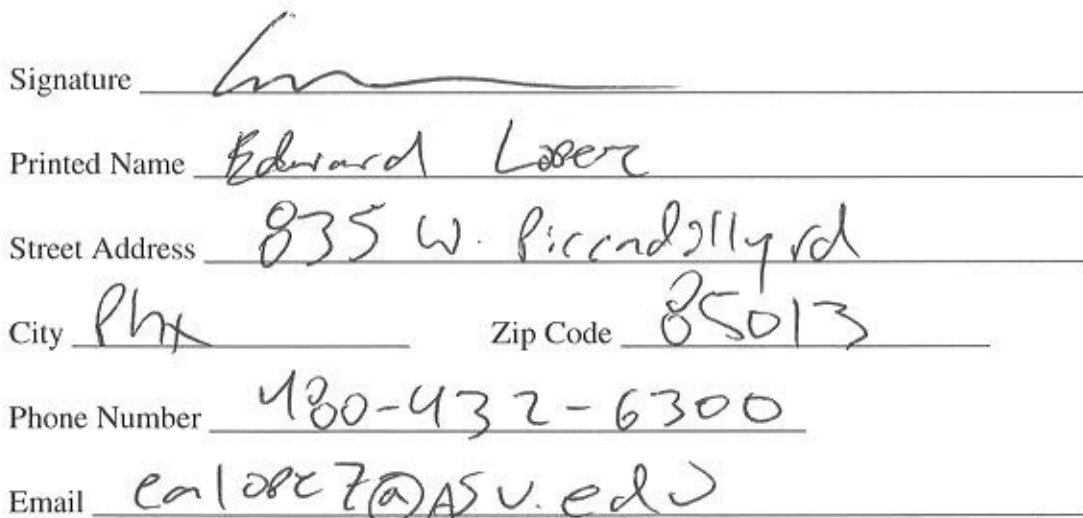 Signature
Printed Name Edward Lopez
Street Address 835 W. Piccadilly rd
City Phx Zip Code 85013
Phone Number 480-432-6300
Email ealopez7@ASU.edu